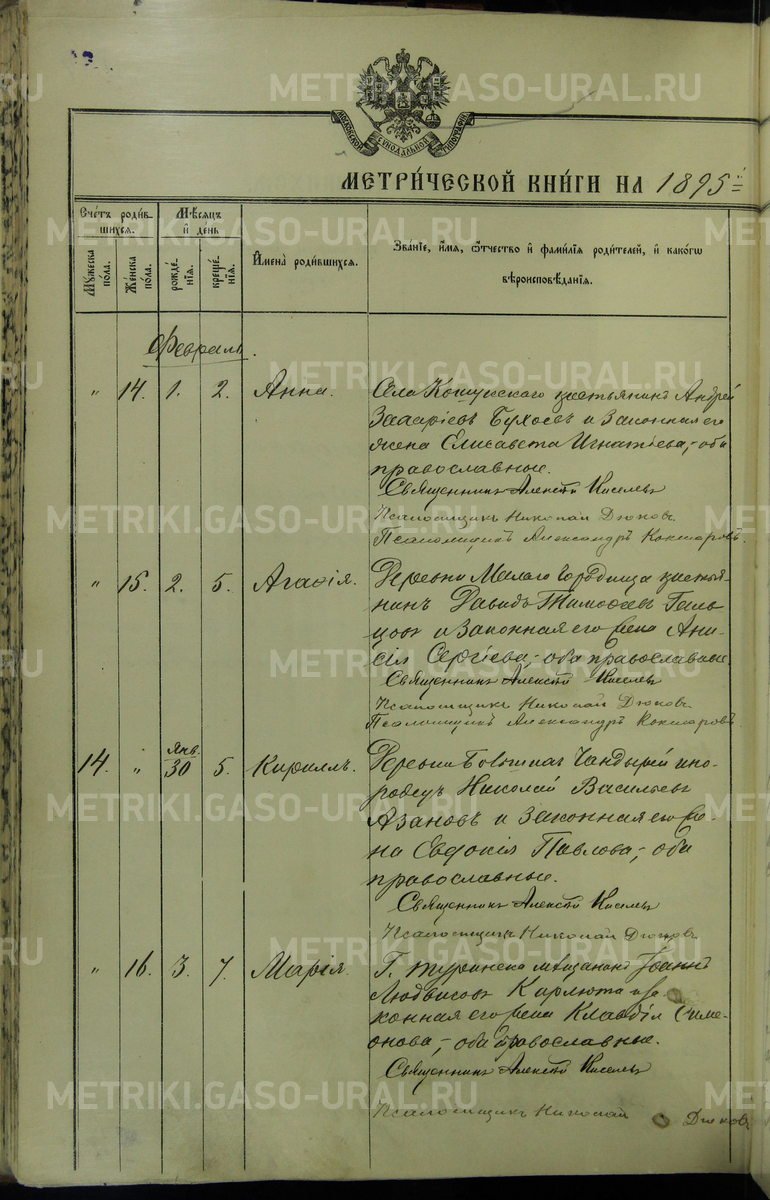 МОСКОВСКОЙ СУНОДАЛЬНОЙ ТИПОГРАФІИ
МЕТРИ́ЧЕСКОЙ КНИ́ГИ НА 1895
Сче́тъ роди́в-
шихся.
Мѣ́сяцъ
и҆ день
Мꙋжеска
по́ла.
Же́нска
по́ла.
рожде́-
нїѧ.
креще́-
нїѧ.
И҆мена̀ роди́вшихся.
Зва́нїе, и҆́мѧ, ѻ҆́тчество и҆ фами́лїѧ роди́телей, и҆ како́гѡ
вѣроисповѣ́данїѧ.
Февраль.
" 14. 1. 2. Анна. Села Кошукскаго крестьянинъ Андрей
Захаріевъ Буховъ и законная его
жена Елисавета Игнатіева, - оба
православные.
Священникъ Алексій Киселевъ
Псаломщикъ Николай Дюковъ.
Псаломщикъ Александръ Кокшаровъ.
" 15. 2. 5. Агаѳія. Деревни Малаго Городища крестья-
нинъ Давидъ Тимоѳеевъ Галь-
цовъ и законная его жена Ани-
сія Сергіева, - оба православные.
Священникъ Алексій Киселевъ
Псаломщикъ Николай Дюковъ.
Псаломщикъ Александръ Кокшаровъ
14. " Янв. 30 5. Кириллъ. Деревни Большихъ Чандырей ино-
родецъ Николай Васильевъ
Азановъ и законная его же-
на Евдокія Павлова, - оба
православные.
Священникъ Алексій Киселевъ
Псаломщикъ Николай Дюковъ
" 16. 3. 7. Марія. Г. Туринска мѣщанинъ Іоаннъ
Людвиговъ Карлюта и за-
конная его жена Клавдія Симе-
онова, - оба православные.
Священникъ Алексій Киселевъ
Псаломщикъ Николай Дюковъ
METRIKI.GASO-URAL.RU